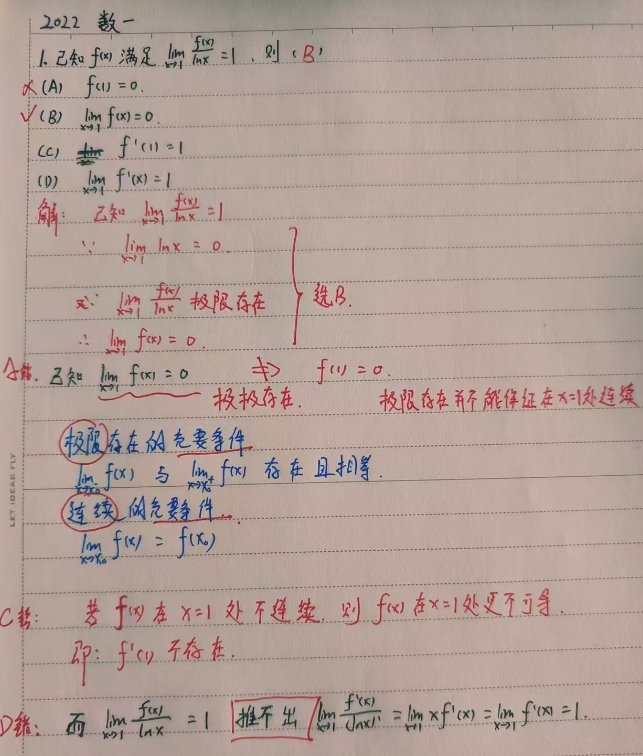 2022 数一
1. 已知 f(x) 满足 lim_{x→1} f(x)/lnx = 1, 则 (B)
× (A) f(1) = 0.
✓ (B) lim_{x→1} f(x) = 0.
(C) f'(1) = 1
(D) lim_{x→1} f'(x) = 1
解: 已知 lim_{x→1} f(x)/lnx = 1
∵ lim_{x→1} lnx = 0.
又∵ lim_{x→1} f(x)/lnx 极限存在 选B.
∴ lim_{x→1} f(x) = 0.
A错. 已知 lim_{x→1} f(x) = 0 ⇏ f(1) = 0.
极极存在. 极限存在并不能保证在x=1处连续
极限存在的充要条件
lim_{x→x₀⁻} f(x) 与 lim_{x→x₀⁺} f(x) 存在且相等.
连续的充要条件.
lim_{x→x₀} f(x) = f(x₀)
C错: 若 f(x) 在 x=1 处不连续, 则 f(x) 在 x=1 处更不可导.
即: f'(1) 不存在.
D错: 而 lim_{x→1} f(x)/lnx = 1 推不出 lim_{x→1} f'(x)/(lnx)' = lim_{x→1} xf'(x) = lim_{x→1} f'(x) = 1.
LET IDEAR FLY